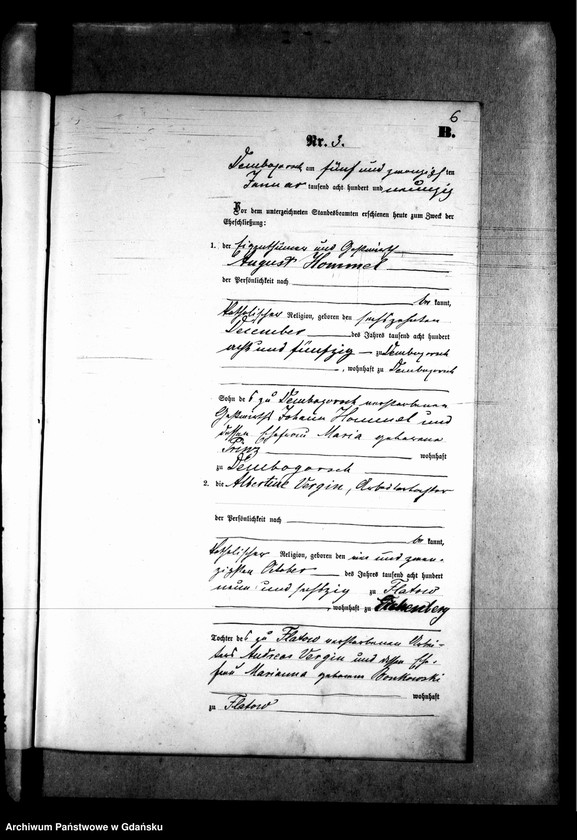 6
B.
Nr. 3.
Dembogorsch, am fünf und zwanzigsten
Januar tausend acht hundert und neunzig
Vor dem unterzeichneten Standesbeamten erschienen heute zum Zweck der
Eheschließung:
1. der Eigenthümer und Gastwirth
August Hommel
der Persönlichkeit nach
be kannt,
katholischer Religion, geboren den sechszehnten
December des Jahres tausend acht hundert
acht und fünfzig zu Dembogorsch
, wohnhaft zu Dembogorsch
Sohn des zu Dembogorsch verstorbenen
Gastwirths Johann Hommel und
dessen Ehefrau Maria geborene
wohnhaft
zu Dembogorsch
2. die Albertine Vergin, Arbeitertochter
der Persönlichkeit nach
be kannt,
katholischer Religion, geboren den ein und zwan-
zigsten October des Jahres tausend acht hundert
neun und sechszig zu Flatow
, wohnhaft zu
Tochter des zu Flatow verstorbenen Arbei-
ters Andreas Vergin und dessen Ehe-
frau Marianna geborene Bonkowski
wohnhaft
zu Flatow
Archiwum Państwowe w Gdańsku